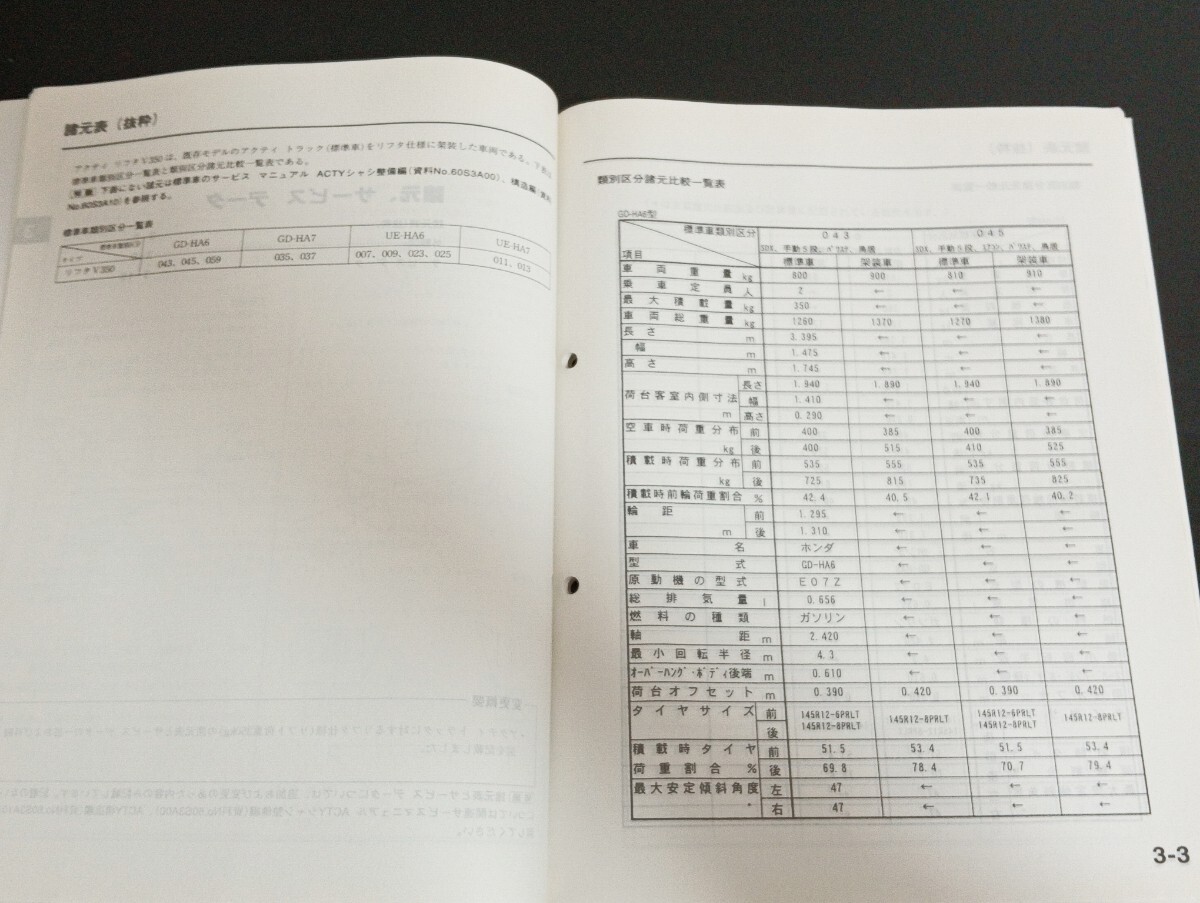 諸元表（抜粋）
アクティ リフタV350は、既存モデルのアクティ トラック(標準車)をリフタ仕様に架装した車両である。下表は
標準車類別区分一覧表と類別区分諸元比較一覧表である。
下表にない諸元は標準車のサービス マニュアル ACTYシャシ整備編(資料No.60S3A00)、構造編(資料
No.60S3A10)を参照する。
標準車類別区分一覧表
標準車類別区分 GD-HA6 GD-HA7 UE-HA6 UE-HA7
タイプ
リフタV350 043、045、059 035、037 007、009、023、025 011、013
類別区分諸元比較一覧表
GD-HA6型
標準車類別区分 043 045
項目 SDX、手動5段、パワステ、鳥居 SDX、手動5段、エアコン、パワステ、鳥居
標準車 架装車 標準車 架装車
車両重量 kg 800 900 810 910
乗車定員 人 2 ← ← ←
最大積載量 kg 350 ← ← ←
車両総重量 kg 1260 1370 1270 1380
長さ m 3.395 ← ← ←
幅 m 1.475 ← ← ←
高さ m 1.745 ← ← ←
荷台客室内側寸法 m 長さ 1.940 1.890 1.940 1.890
幅 1.410 ← ← ←
高さ 0.290 ← ← ←
空車時荷重分布 kg 前 400 385 400 385
後 400 515 410 525
積載時荷重分布 kg 前 535 555 535 555
後 725 815 735 825
積載時前輪荷重割合 % 42.4 40.5 42.1 40.2
輪距 m 前 1.295 ← ← ←
後 1.310 ← ← ←
車名 ホンダ ← ← ←
型式 GD-HA6 ← ← ←
原動機の型式 E07Z ← ← ←
総排気量 l 0.656 ← ← ←
燃料の種類 ガソリン ← ← ←
軸距 m 2.420 ← ← ←
最小回転半径 m 4.3 ← ← ←
オーバーハング・ボディ後端 m 0.610 ← ← ←
荷台オフセット m 0.390 0.420 0.390 0.420
タイヤサイズ 前 後 145R12-6PRLT 145R12-8PRLT 145R12-6PRLT 145R12-8PRLT
145R12-8PRLT 145R12-8PRLT
積載時タイヤ 前 51.5 53.4 51.5 53.4
荷重割合 % 後 69.8 78.4 70.7 79.4
最大安定傾斜角度 ° 左 47 ← ← ←
右 47 ← ← ←
3-3